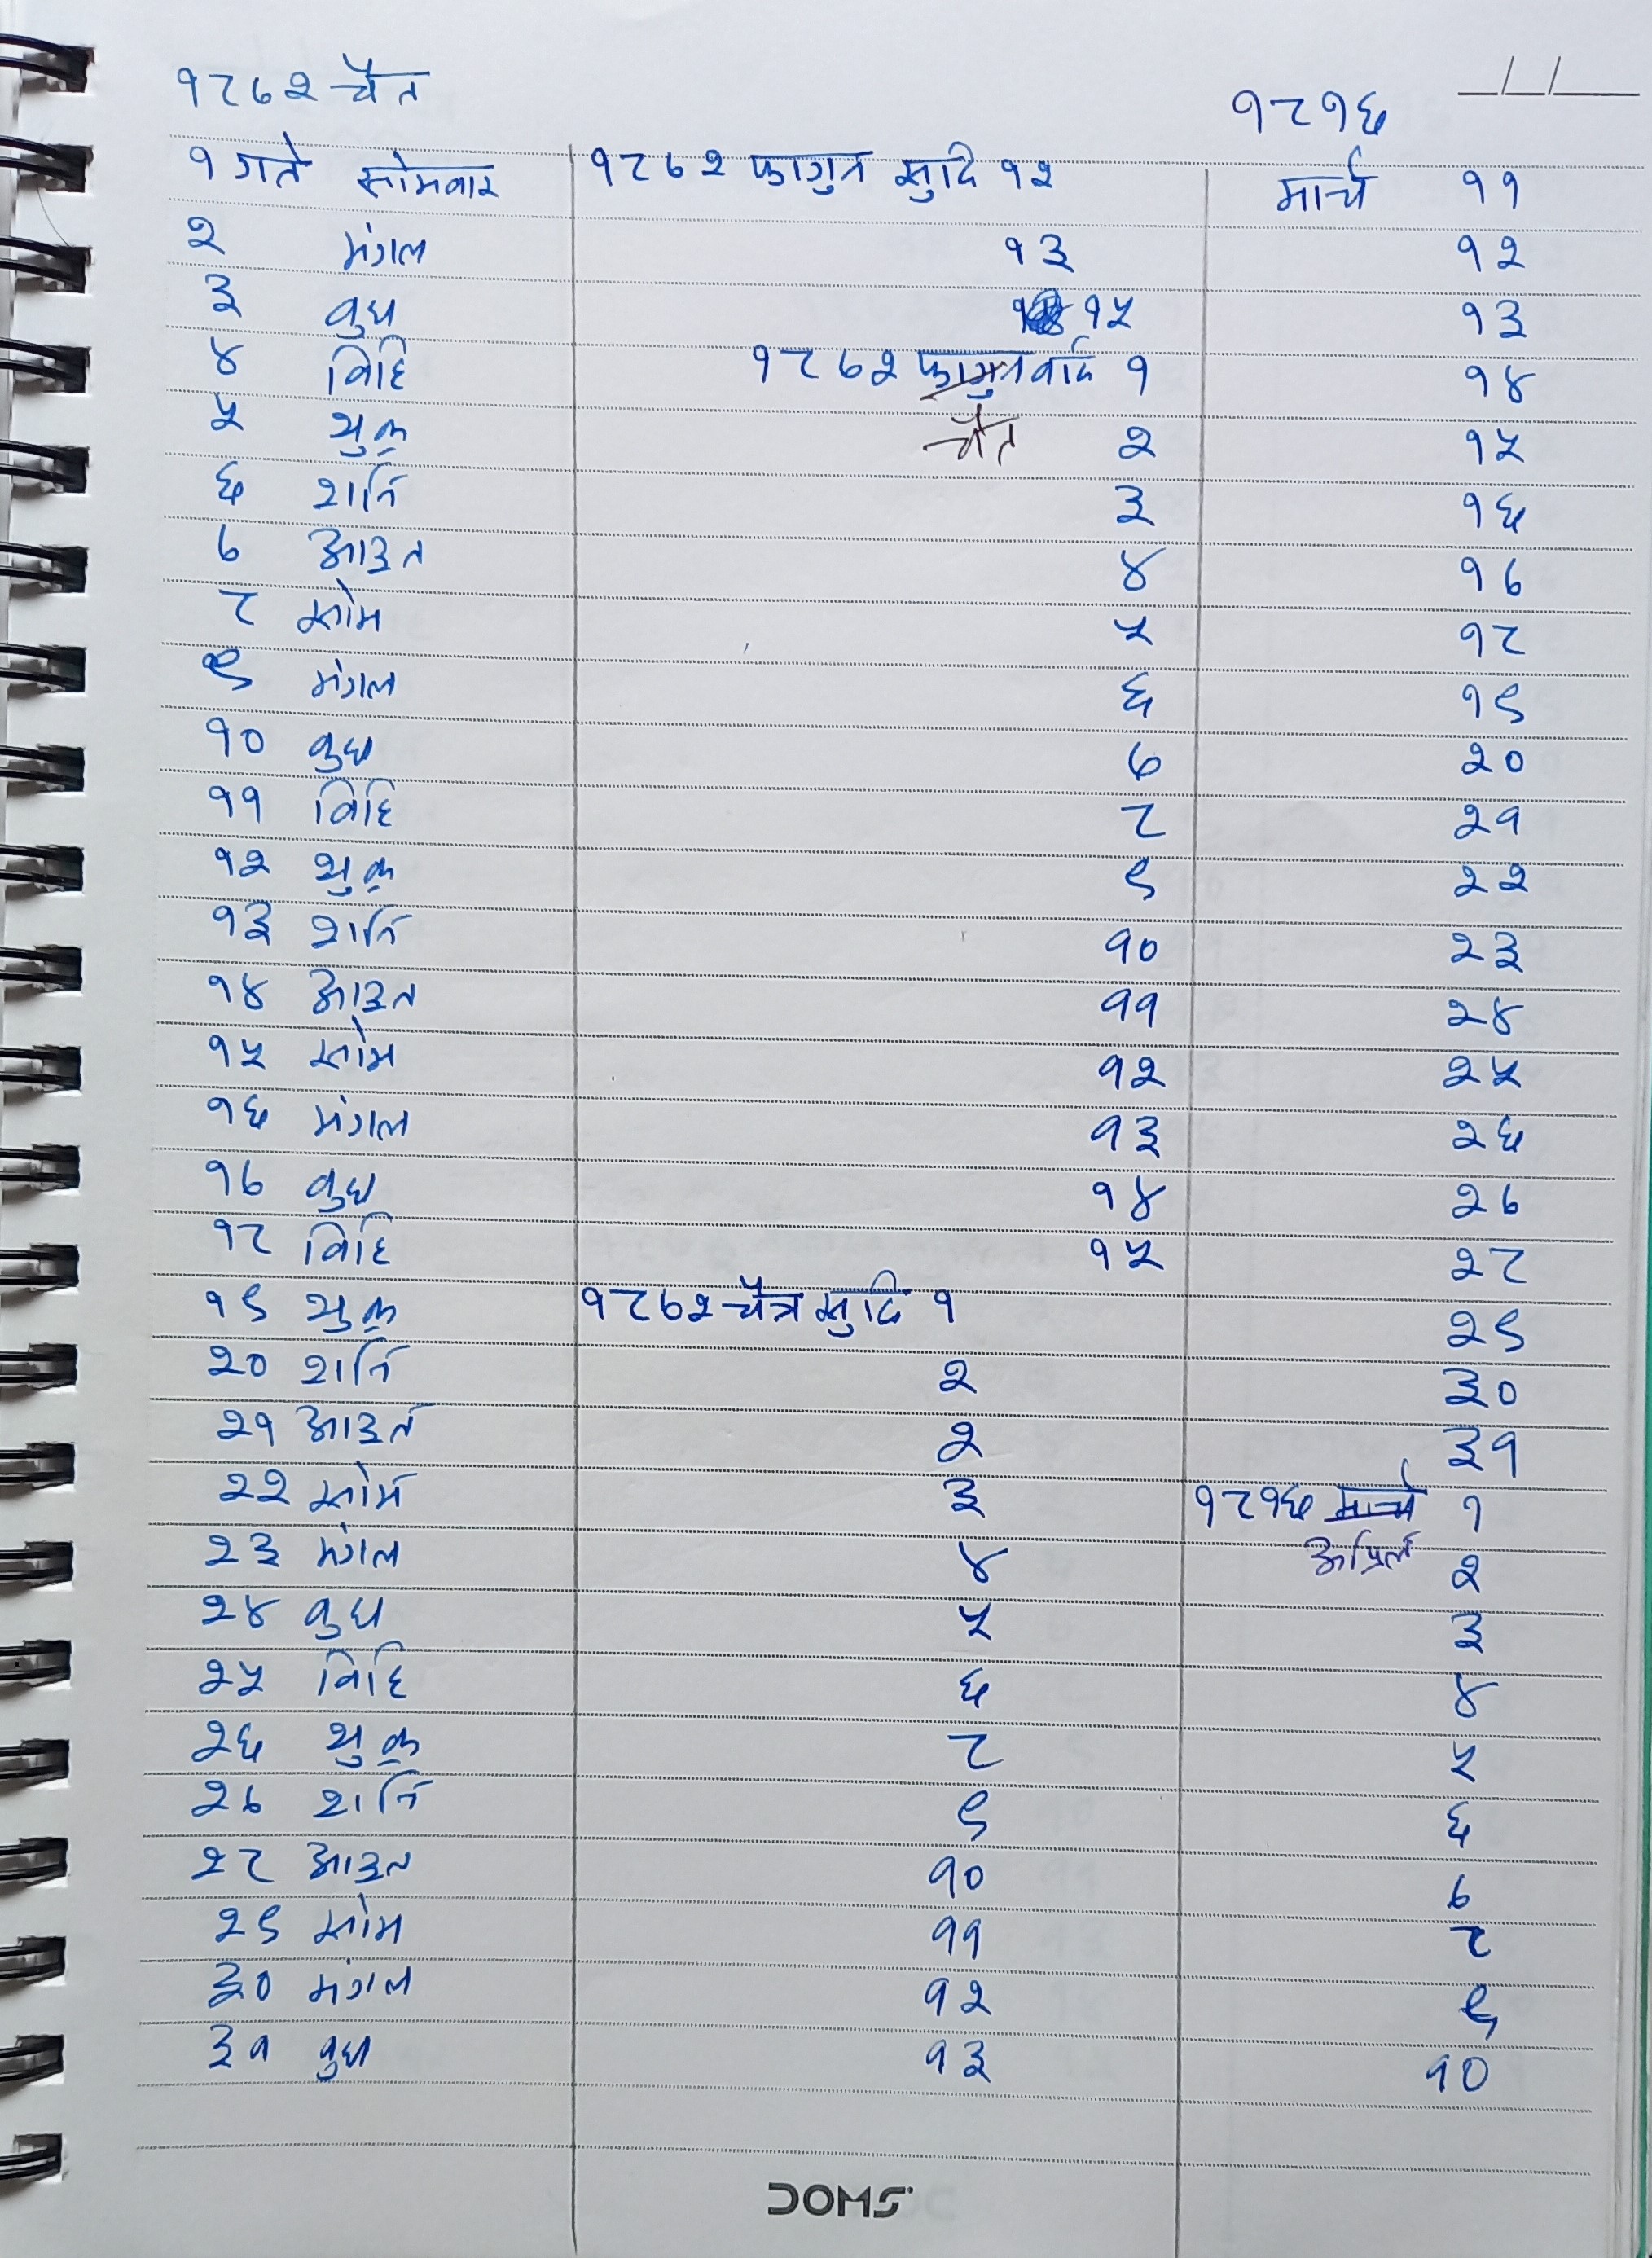 १८७२ चैत
१८१६
१ गते सोमवार १८७२ फागुन सुदि १२ मार्च ११
२ मंगल १३ १२
३ बुध १५ १३
४ विहि १८७२ फागुन वदि १ १४
५ शुक्र चैत २ १५
६ शनि ३ १६
७ आइत ४ १७
८ सोम ५ १८
९ मंगल ६ १९
१० बुध ७ २०
११ विहि ८ २१
१२ शुक्र ९ २२
१३ शनि १० २३
१४ आइत ११ २४
१५ सोम १२ २५
१६ मंगल १३ २६
१७ बुध १४ २७
१८ विहि १५ २८
१९ शुक्र १८७२ चैत्र सुदि १ २९
२० शनि २ ३०
२१ आइत २ ३१
२२ सोम ३ १८१६ मार्च १
२३ मंगल ४ अप्रिल २
२४ बुध ५ ३
२५ विहि ६ ४
२६ शुक्र ८ ५
२७ शनि ९ ६
२८ आइत १० ७
२९ सोम ११ ८
३० मंगल १२ ९
३१ बुध १३ १०
DOMS